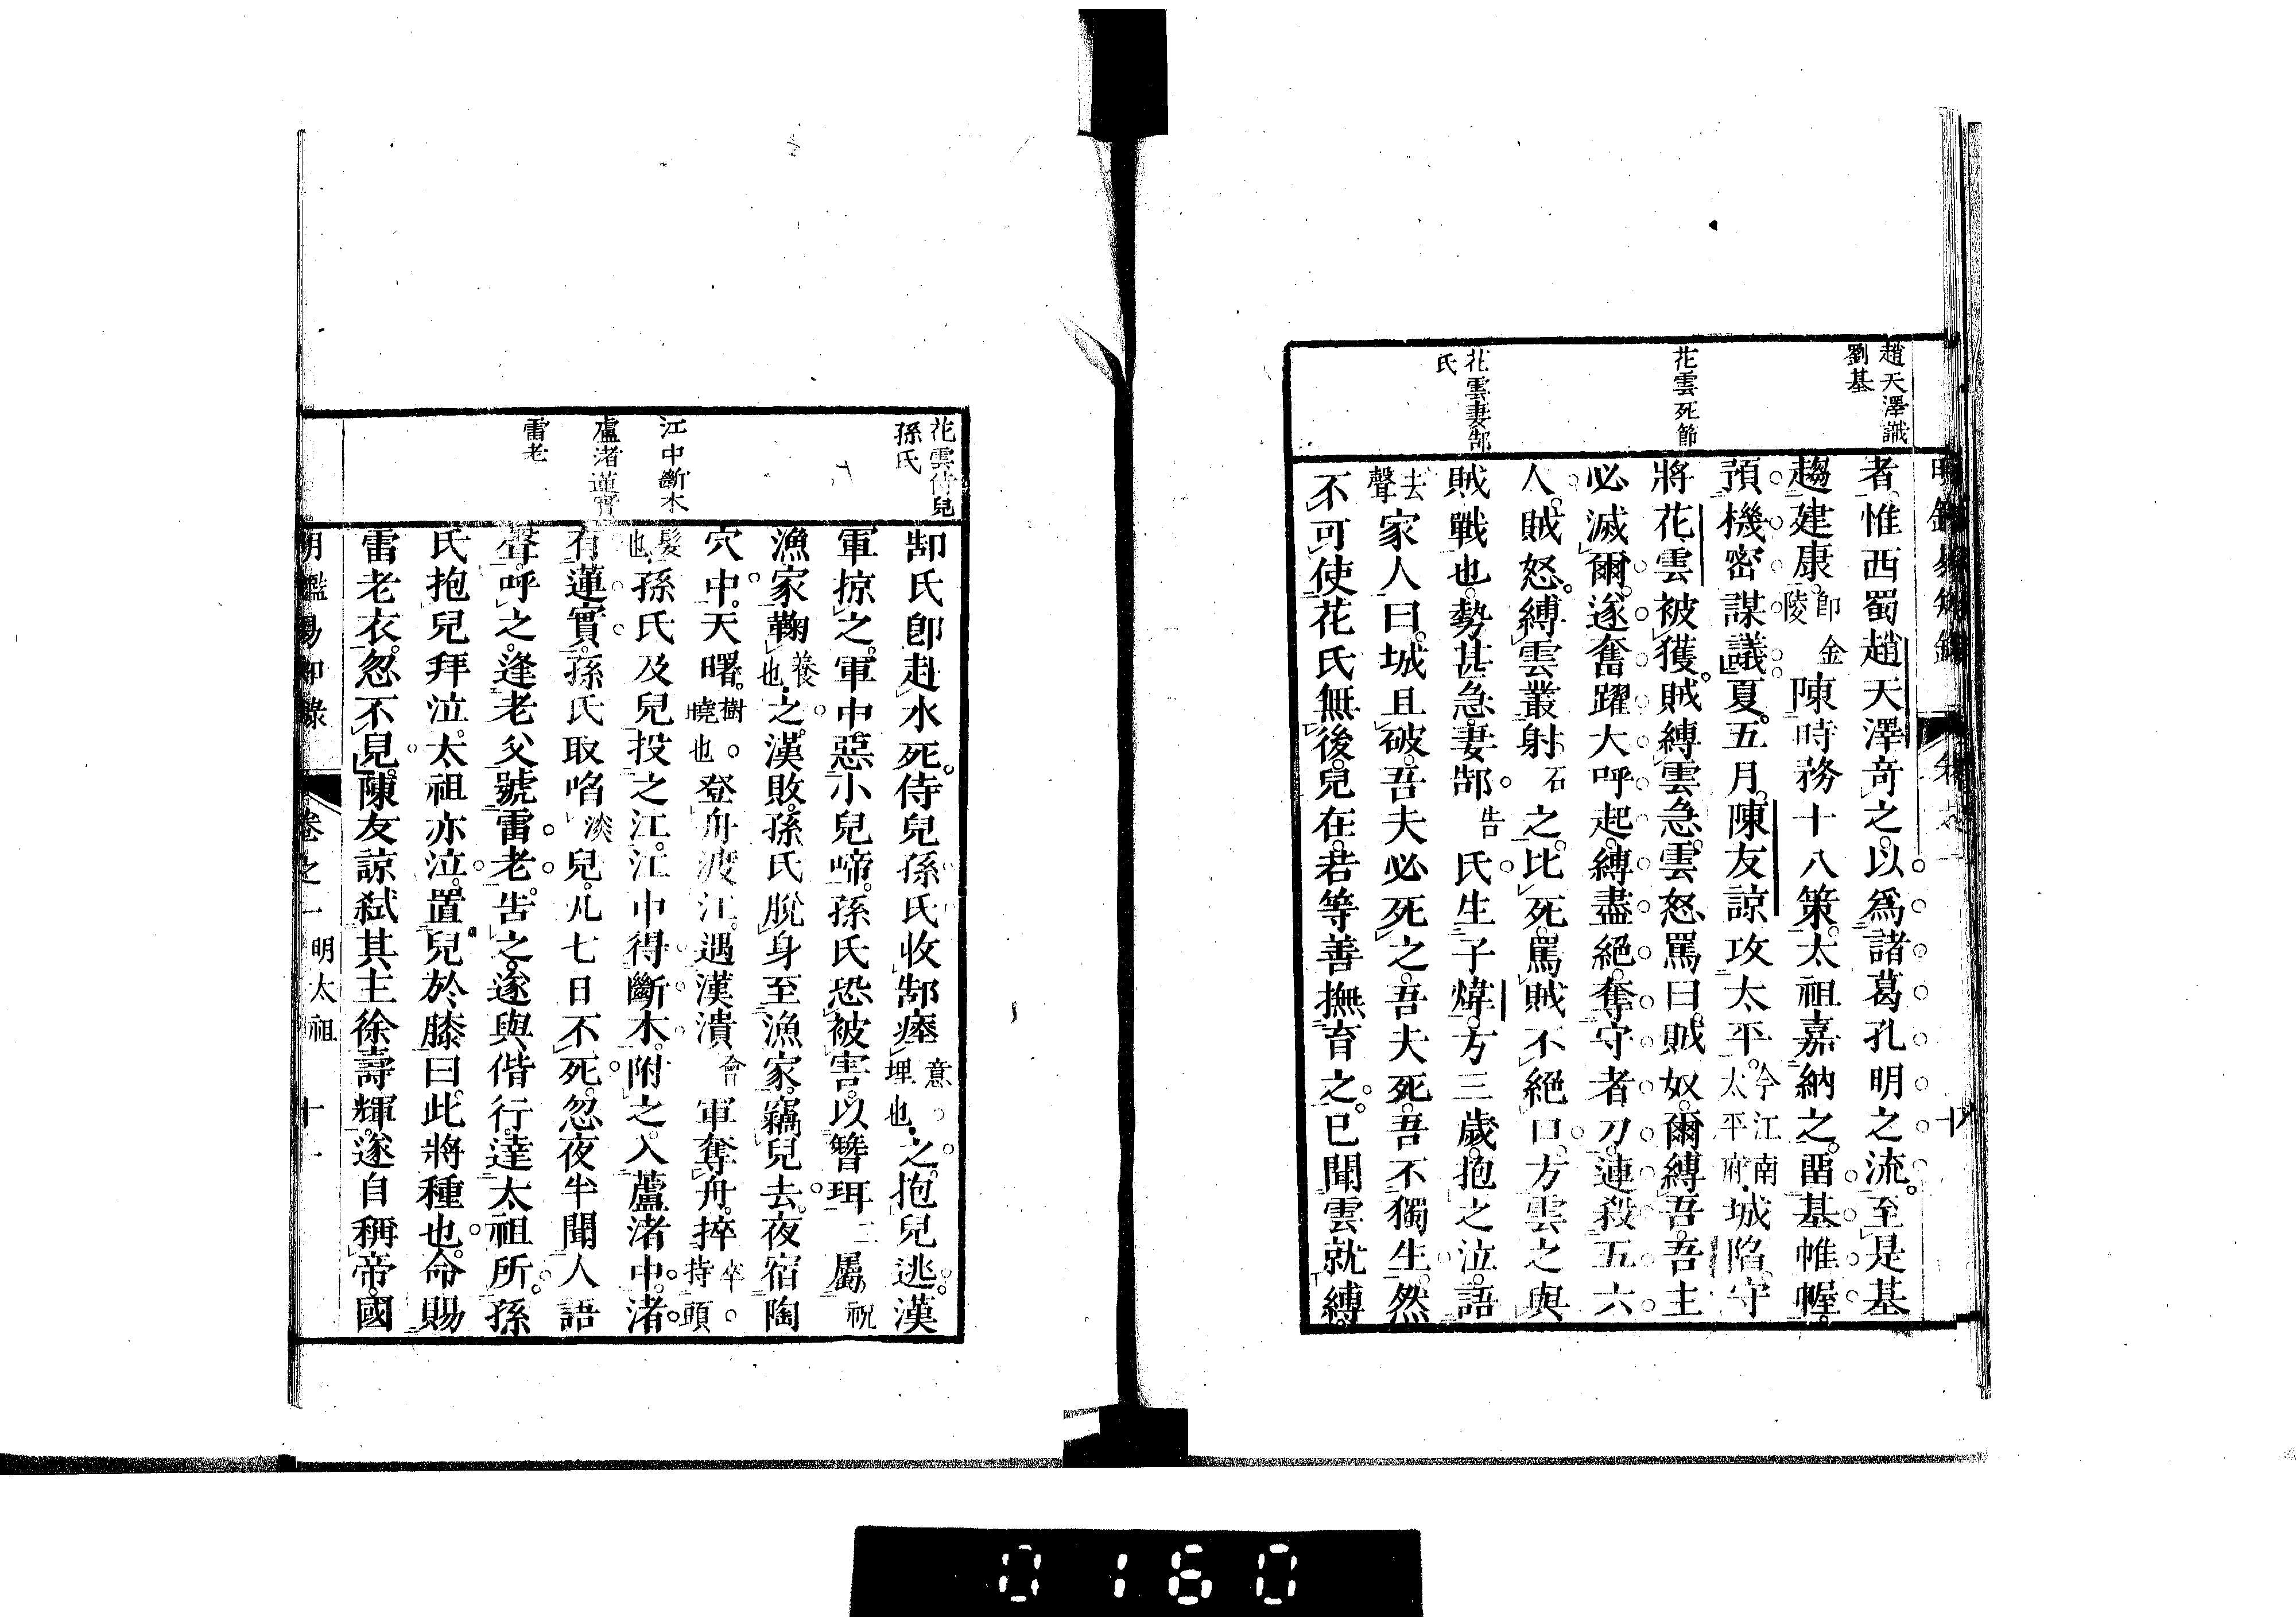 趙天澤識
劉基
花雲死節
花雲妻郜
氏
者。惟西蜀趙天澤奇之。以爲諸葛孔明之流。至是基
趨建康。卽金陵陳時務十八策。太祖嘉納之。畱基帷幄。
預機密謀議。夏。五月。陳友諒攻太平。今江南太平府城陷。守
將花雲被獲。賊縛雲急。雲怒罵曰。賊奴。爾縛吾。吾主
必滅爾。遂奮躍大呼起。縛盡絕。奪守者刀。連殺五六
人。賊怒。縛雲叢射石之。比死。罵賊不絕口。方雲之與
賊戰也。勢甚急。妻郜告氏生子煒。方三歲。抱之泣。語
去聲家人曰。城且破。吾夫必死之。吾夫死。吾不獨生。然
不可使花氏無後。兒在。若等善撫育之。已聞雲就縛。
花雲侍兒
孫氏
江中斷木
蘆渚蓮實
雷老
郜氏卽赴水死。侍兒孫氏收郜瘞意埋也之。抱兒逃。漢
軍掠之。軍中惡小兒啼。孫氏恐被害。以簪珥二屬祝
漁家鞠養也之。漢敗。孫氏脫身至漁家。竊兒去。夜宿陶
穴中。天曙。樹曉也登舟渡江。遇漢潰會軍奪舟。捽卒持頭
髮也孫氏及兒投之江。江中得斷木。附之。入蘆渚中。渚
有蓮實。孫氏取啗淡兒。凡七日不死。忽夜半聞人語
聲。呼之。逢老父號雷老。告之。遂與偕行。達太祖所。孫
氏抱兒拜泣。太祖亦泣。置兒於膝曰。此將種也。命賜
雷老衣。忽不見。陳友諒弒其主徐壽輝。遂自稱帝。國
明鑑易知錄 卷之一 明太祖 十一
0160